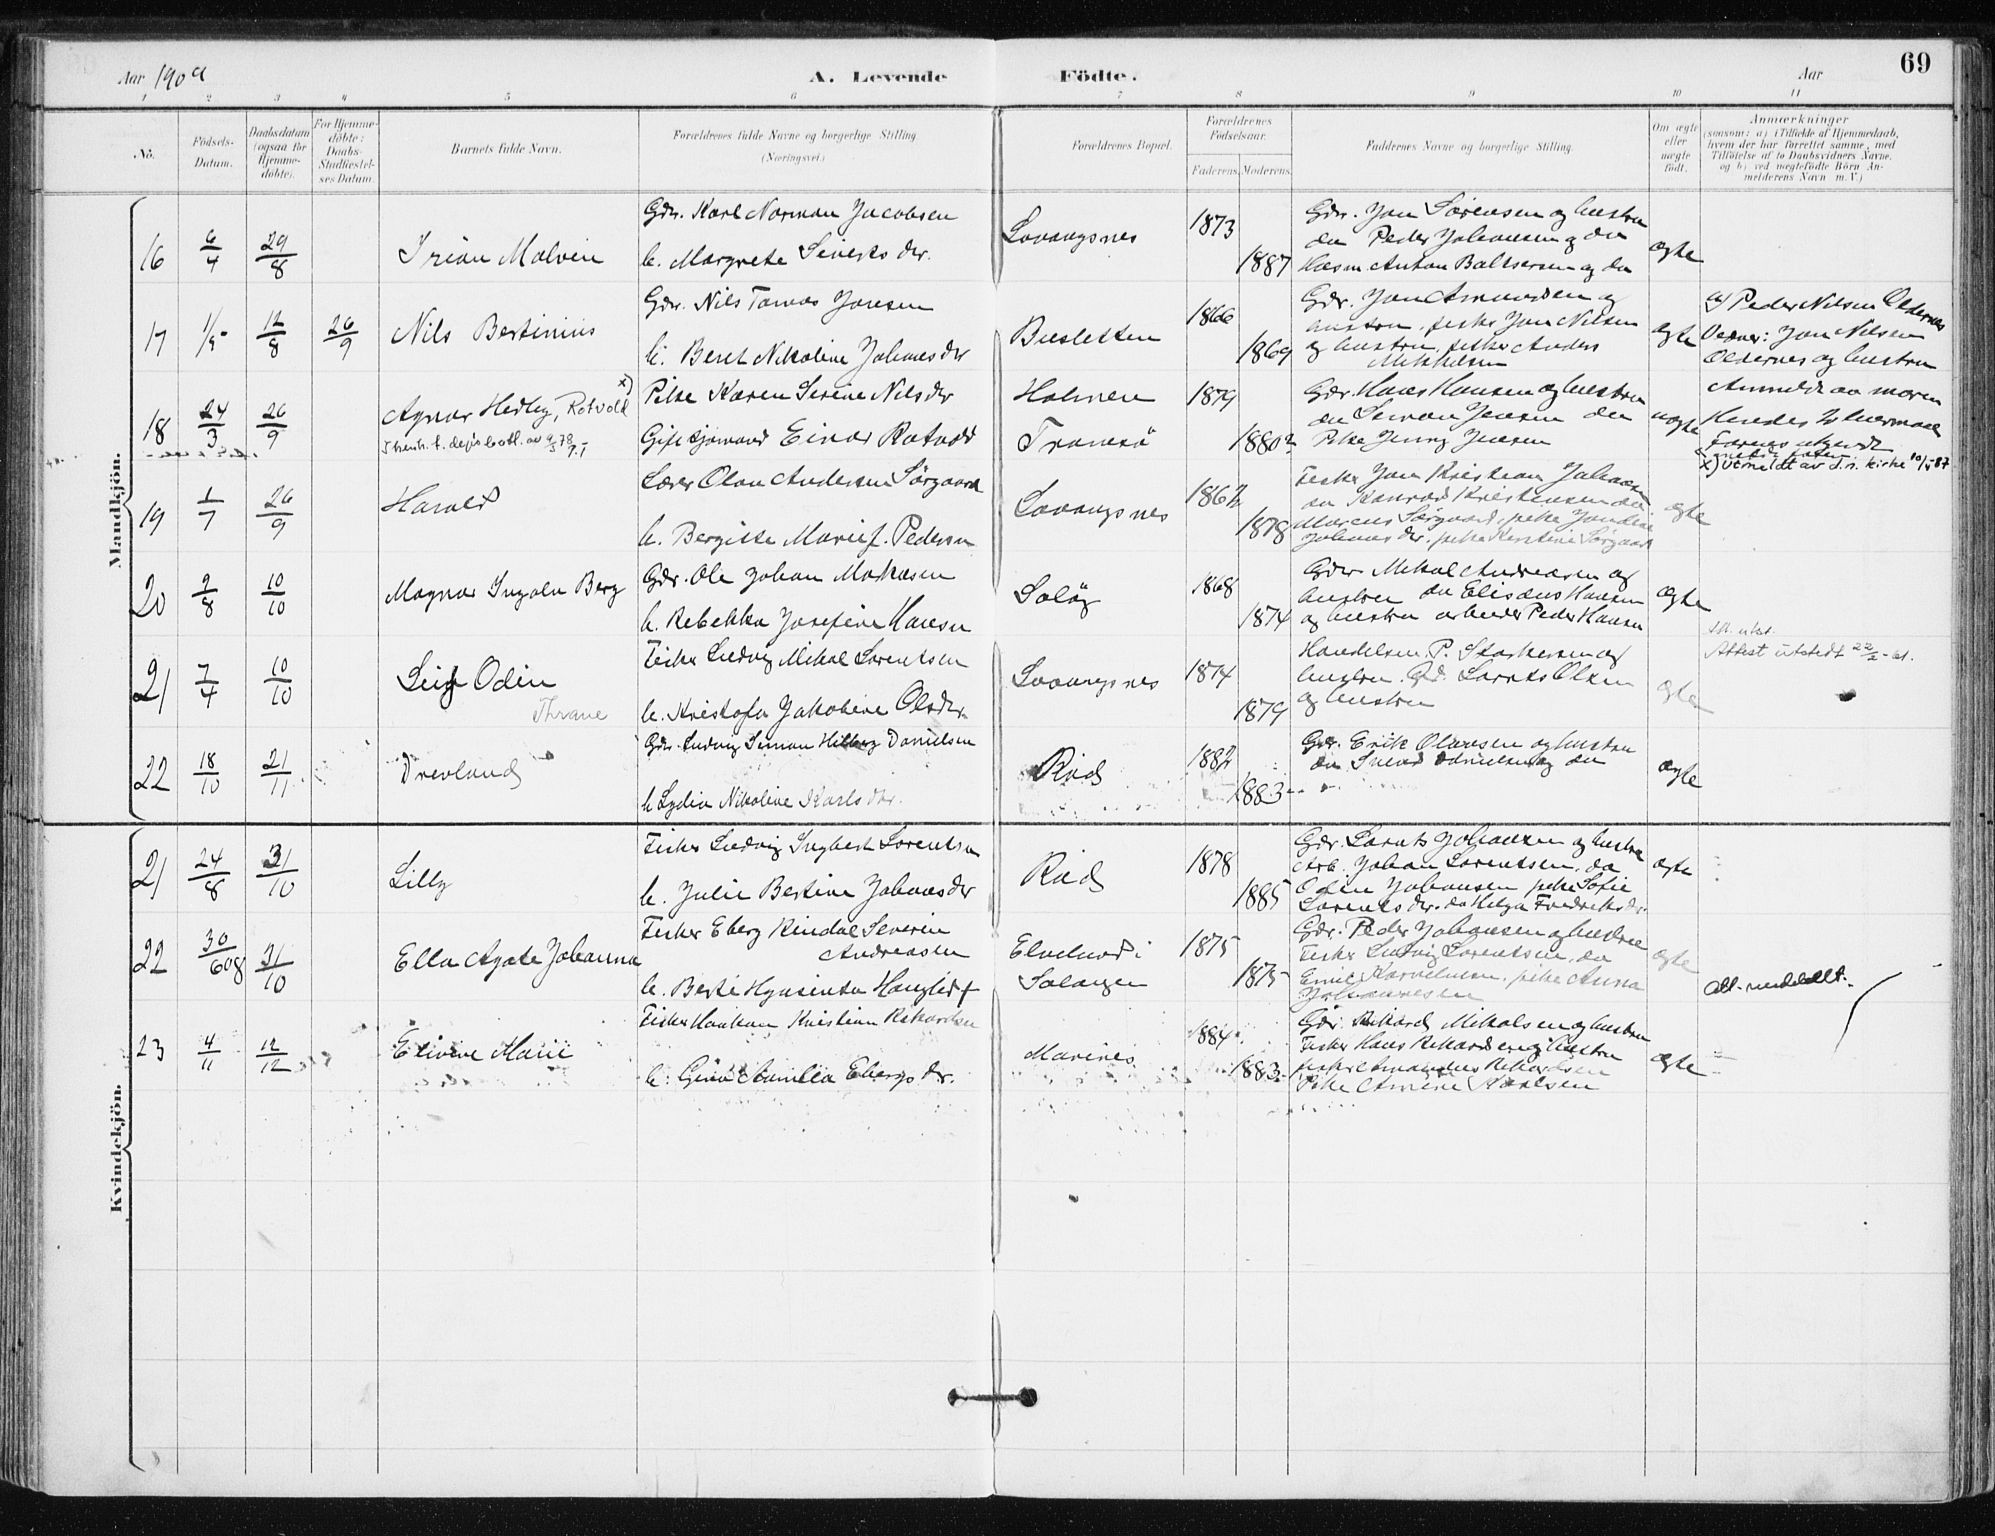 Aar 1909
A. Levende
Födte.
Aar
69
1 2 3 4 5 6 7 8 9 10 11
No.
Födsels-
Datum.
Daabsdatum
(ogsaa for
Hjemme-
döbte).
For Hjemme-
döbte:
Daabs-
Stadfæstel-
ses Datum.
Barnets fulde Navn.
Forældrenes fulde Navne og borgerlige Stilling.
(Næringsvei.)
Forældrenes Bopæl.
Forældrenes
Födselsaar.
Faderens. Moderens.
Faddernes Navne og borgerlige Stilling.
Om ægte
eller
uægte
födt.
Anmærkninger
(saasom: a) i Tilfælde af Hjemmedaab,
hvem der har forrettet samme, med
Tilföielse af to Daabsvidners Navne,
og b) ved uægtefödte Börn An-
melderens Navn m. V.)
Mandkjön.
16 6/4 29/8
Gdr. Karl Norman Jacobsen
h. Margrete Siverts dr.
1873
1887
Gdr. Jon Sørensen og hustru
du Peder Johansen og du
Anton Baltsersen og du
ægte
17 1/5 12/8 26/9 Nils Bertinius
Gdr. Nils Tomas Jonsen
h. Beret Nikoline Johans dr
1866
1869
Gdr. Jon Amundsen og
hustru, fisker Jon Nilsen
og hustru, fisker Anders
Mikkelsen
ægte
a) Peder Nilsen Oldernes
Vidner: Jon Nilsen
Oldernes og hustru
18 24/3 26/9 Agnar Hedley, Rotvold x)
Pike Karen Serine Nils dr
Gift sjömand Einar Rotvold
Holmen
Tromsö
1879
1880?
Gdr. Hans Hansen og hustru
du Simon Jensen du
Pike Jenny Jensen
uægte
Anmeldt av moren
x) Utmeldt av d.n. kirke 10/4-87
19 1/7 26/9 Harald
Lærer Olav Andersen Sörgaard
h. Bergitte Marie f. Pedersen
Lavangsnes
1867
1878
Fisker Jon Kristian Johansen
du Konrad Kristensen du
Marcus Sörgaard, pike Jondine
Johans dr. pike Kirstine Sörgaard
ægte
20 9/8 10/10 Magnar Ingolv Berg
Gdr. Ole Johan Markusen
h. Rebekka Josefine Hansen
Salög
1868
1874
Gdr. Mikal Andreasen og
hustru du Elisæus Hansen
og hustru arbeider Peder Hansen
ægte
21 7/4 10/10 Leif Odin
Thrane
Fisker Ludvig Mikal Lorentsen
h. Kristofa Jakobine Olsdr.
Lavangsnes
1874
1879
Handelsm. P. Storkersen og
hustru. Gd. Lorents Olsen
og hustru
ægte
Attest utstedt 22/2-61.
22 18/10 21/11 Drevland
Gdr. Ludvig Simon Hilberg Danielsen
h Lydia Nikoline Karls dtr.
Röd
1882
1883
Gdr. Erik Olausen og hustru
du Sivert Danielsen og du
ægte
Kvindekjön.
21 24/8 31/10 Lilly
Fisker Ludvig Ingbert Lorentsen
h. Julie Bertine Johans dr
Röd
1878
1885
Gdr. Lorents Johansen og hustru
Arb. Johan Lorentsen, du
Odin Johansen pike Sofie
Lorents dr. du Helga Fredriks dr.
ægte
22 30/6 08 31/10 Ella Agate Johanna
Fisker Eberg Rindal Severin
Andreassen
h. Berte Hyasinta Hanglid f
Elvelund i
Salangen
1875
1875
Gdr. Peder Johansen og hustru
Fisker Ludvig Lorentsen, du
Emil Kornelius, pike Anna
Johannesen
ægte
Att. meddelt.
23 4/11 12/12 Elivine Marie
Fisker Haakon Kristian Rikardsen
h: Gina Amilia Ebergs dr.
1884
1883
Gdr. Rikard Mikalsen og hustru
Fisker Hans Rikardsen og hustru
fisker Amandus Rikardsen
Pike Amine Karlsen
ægte